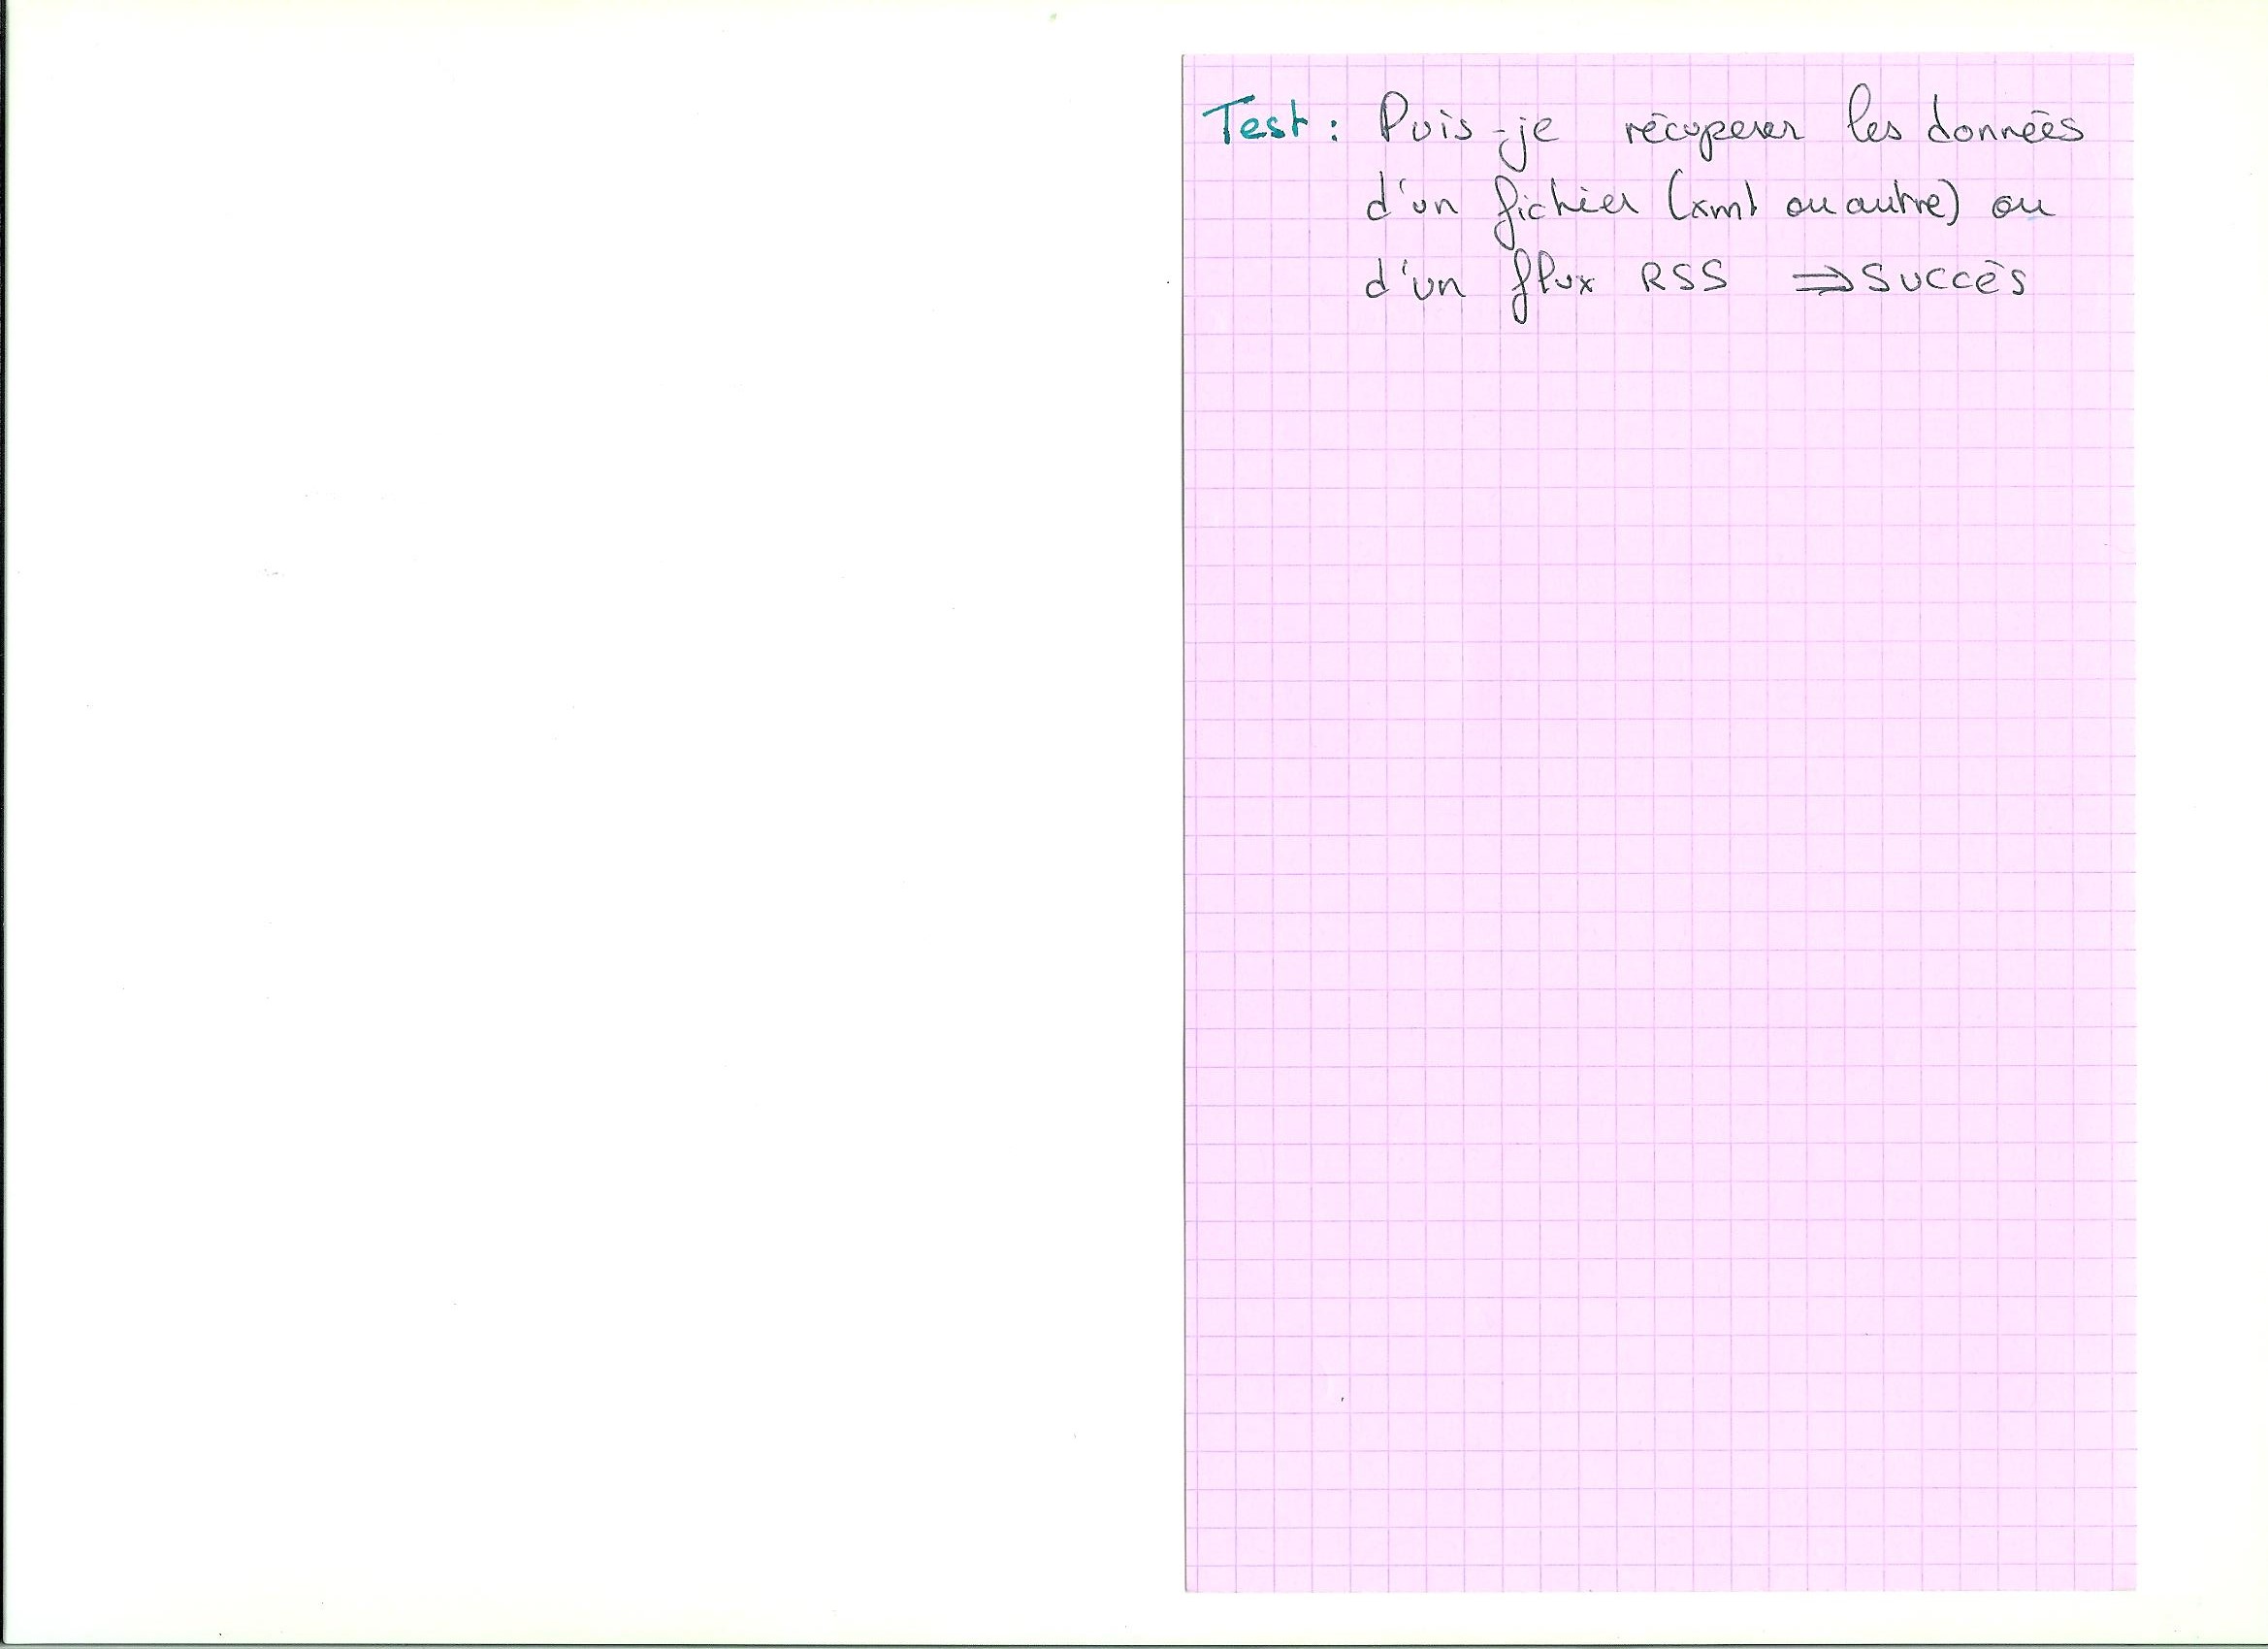 Test : Puis-je récuperer les données
d'un fichier (xml ou autre) ou
d'un flux RSS ⇒ Succès